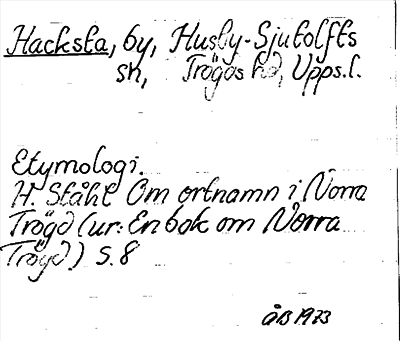 Hacksta, by, Husby-Sjutolfts
sn, Trögds hd, Upps.l.
Etymologi.
H. Ståhl Om ortnamn i Norra
Trögd (ur: En bok om Norra
Trögd) S. 8
ÅB 1973